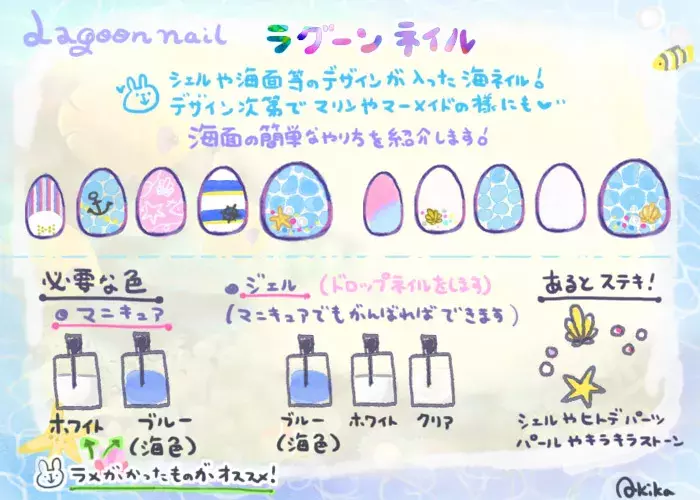 Lagoon nail ラグーンネイル
シェルや海面等のデザインが入った海ネイル!
デザイン次第でマリンやマーメイドの様にも
海面の簡単なやり方を紹介します!
必要な色
マニキュア
ホワイト
ブルー
(海色)
ラメがかったものがオススメ!
ジェル (ドロップネイルをします)
(マニキュアでもがんばればできます)
ブルー
(海色)
ホワイト
クリア
あるとステキ!
シェルやヒトデパーツ
パールやキラキラストーン
@kika